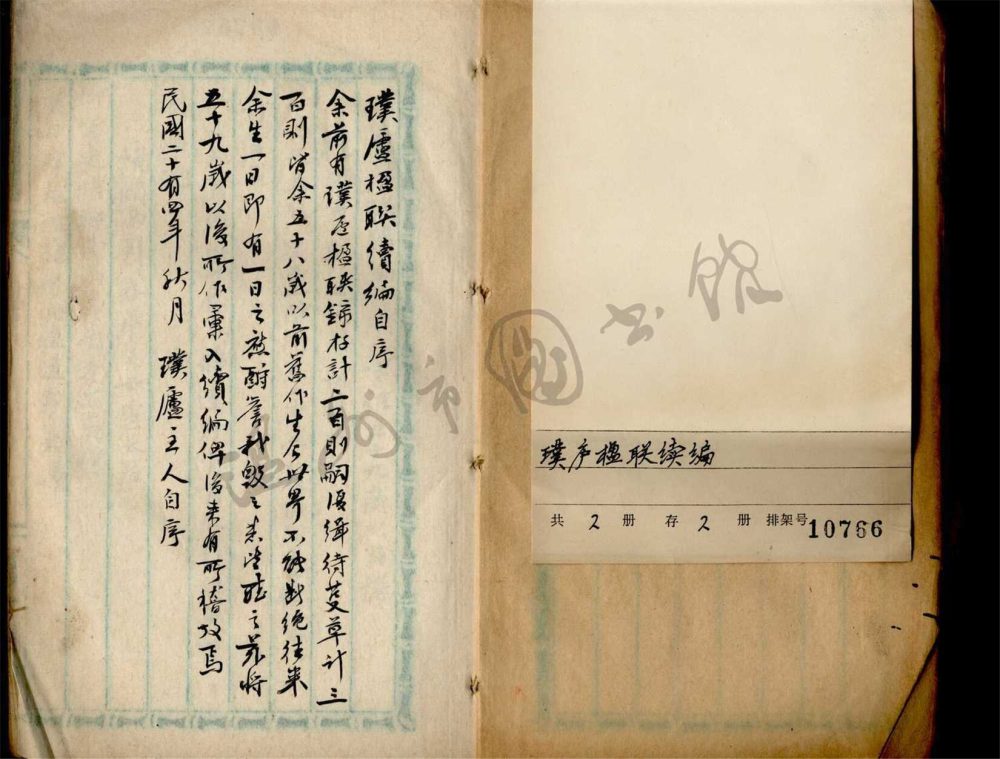 璞庐楹联续编
共 2 册 存 2 册 排架号 10766
璞廬楹聯續編自序
余前有璞庐楹聯存計二百則嗣復緝待芟草計三
百則皆余五十八歲以前舊作生今世界不能斷絕往來
余生一日即有一日之應酬譽我毀聽之茲將
五十九歲以後所作彙入續編俾後來有所稽攷焉
民國二十有四年秋月 璞廬主人自序
温州市圖书馆